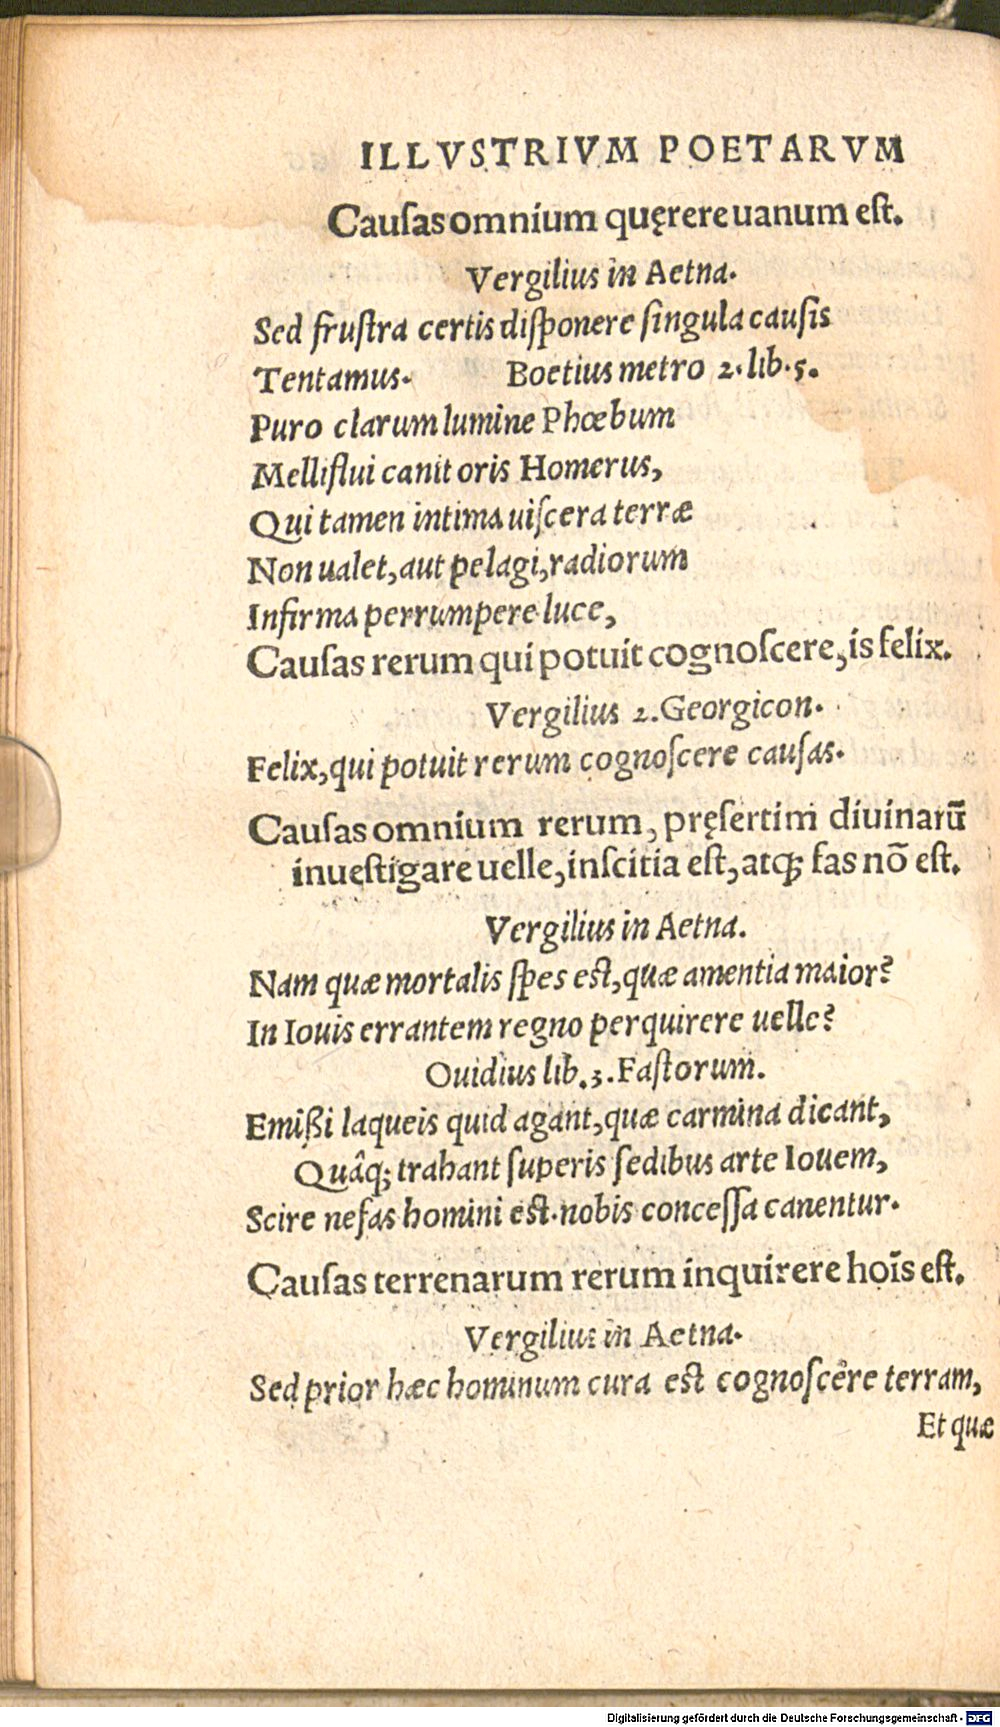 ILLVSTRIVM POETARVM
Cauſas omnium quęrere uanum eſt.
Vergilius in Aetna.
Sed fruſtra certis diſponere ſingula cauſis
Tentamus. Boetius metro 2. lib. 5.
Puro clarum lumine Phœbum
Melliflui canit oris Homerus,
Qui tamen intima uiſcera terræ
Non ualet, aut pelagi, radiorum
Infirma perrumpere luce,
Cauſas rerum qui potuit cognoſcere, is felix.
Vergilius 2. Georgicon.
Felix, qui potuit rerum cognoſcere cauſas.
Cauſas omnium rerum, pręſertim diuinarū
inueſtigare uelle, inſcitia eſt, atq; fas nō eſt.
Vergilius in Aetna.
Nam quæ mortalis ſpes eſt, quæ amentia maior?
In Iouis errantem regno perquirere uelle?
Ouidius lib. 3. Faſtorum.
Emißi laqueis quid agant, quæ carmina dicant,
Quâq; trahant ſuperis ſedibus arte Iouem,
Scire nefas homini eſt. nobis conceſſa canentur.
Cauſas terrenarum rerum inquirere hoīs eſt.
Vergilius in Aetna.
Sed prior hæc hominum cura eſt cognoſcere terram,
Et quæ
Digitalisierung gefördert durch die Deutsche Forschungsgemeinschaft - DFG